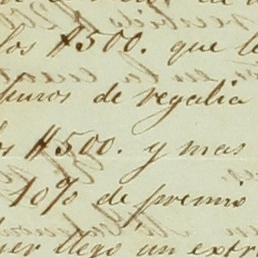 los $500. que le
puros de regalia
$500. y mas
10% de premio
llegó un extr